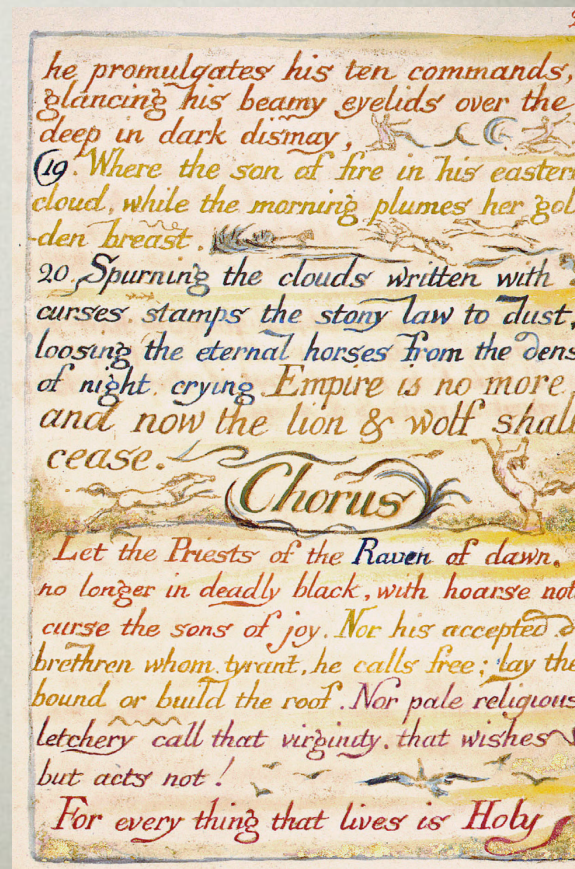 he promulgates his ten commands,
glancing his beamy eyelids over the
deep in dark dismay,
19. Where the son of fire in his eastern
cloud, while the morning plumes her gol
-den breast.
20. Spurning the clouds written with
curses, stamps the stony law to dust,
loosing the eternal horses from the dens
of night, crying Empire is no more,
and now the lion & wolf shall
cease.
Chorus
Let the Priests of the Raven of dawn,
no longer in deadly black, with hoarse not
curse the sons of joy. Nor his accepted
brethren whom, tyrant, he calls free; lay the
bound or build the roof. Nor pale religious
letchery call that virginity, that wishes
but acts not!
For every thing that lives is Holy